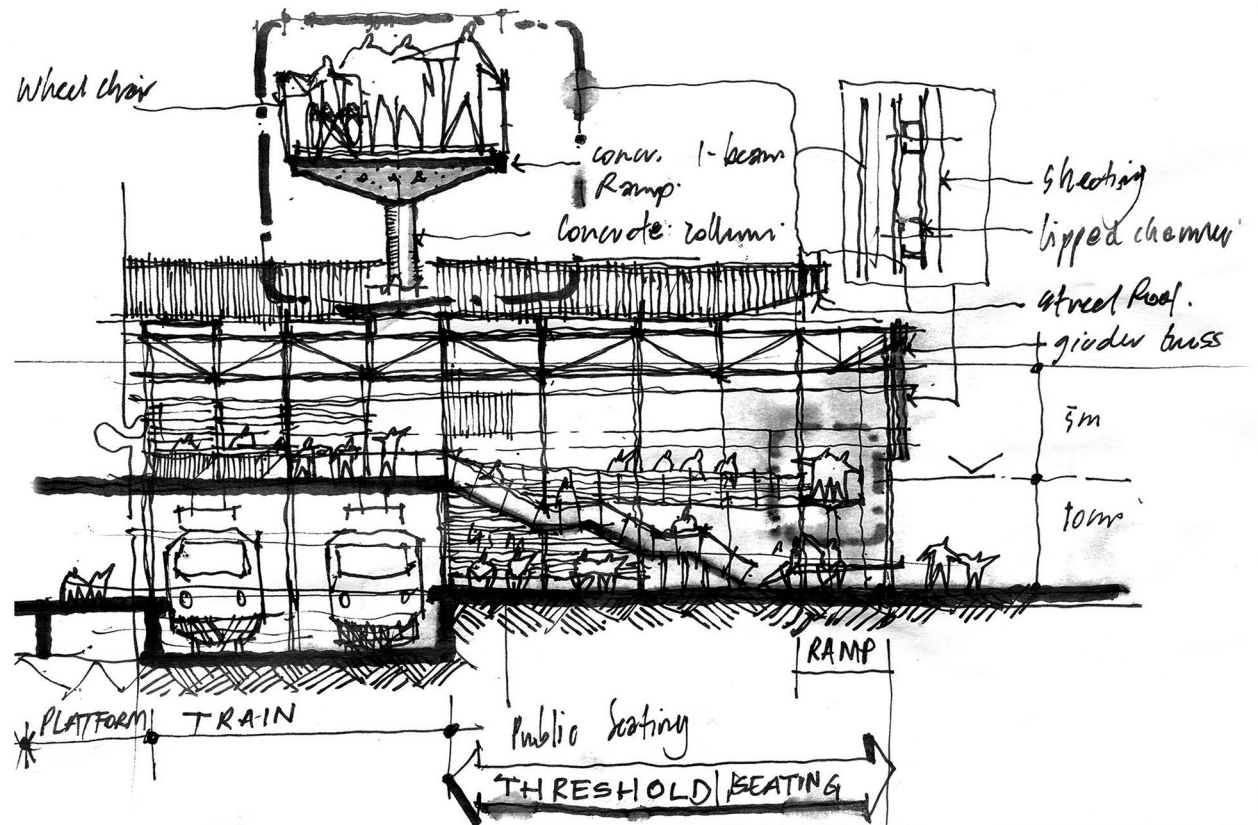 Wheel chair
concr. I-beam
Ramp.
Concrete collumn
sheating
lipped channel
steel Roof.
girder truss
5m
RAMP
PLATFORM
TRAIN
Public Seating
THRESHOLD | SEATING